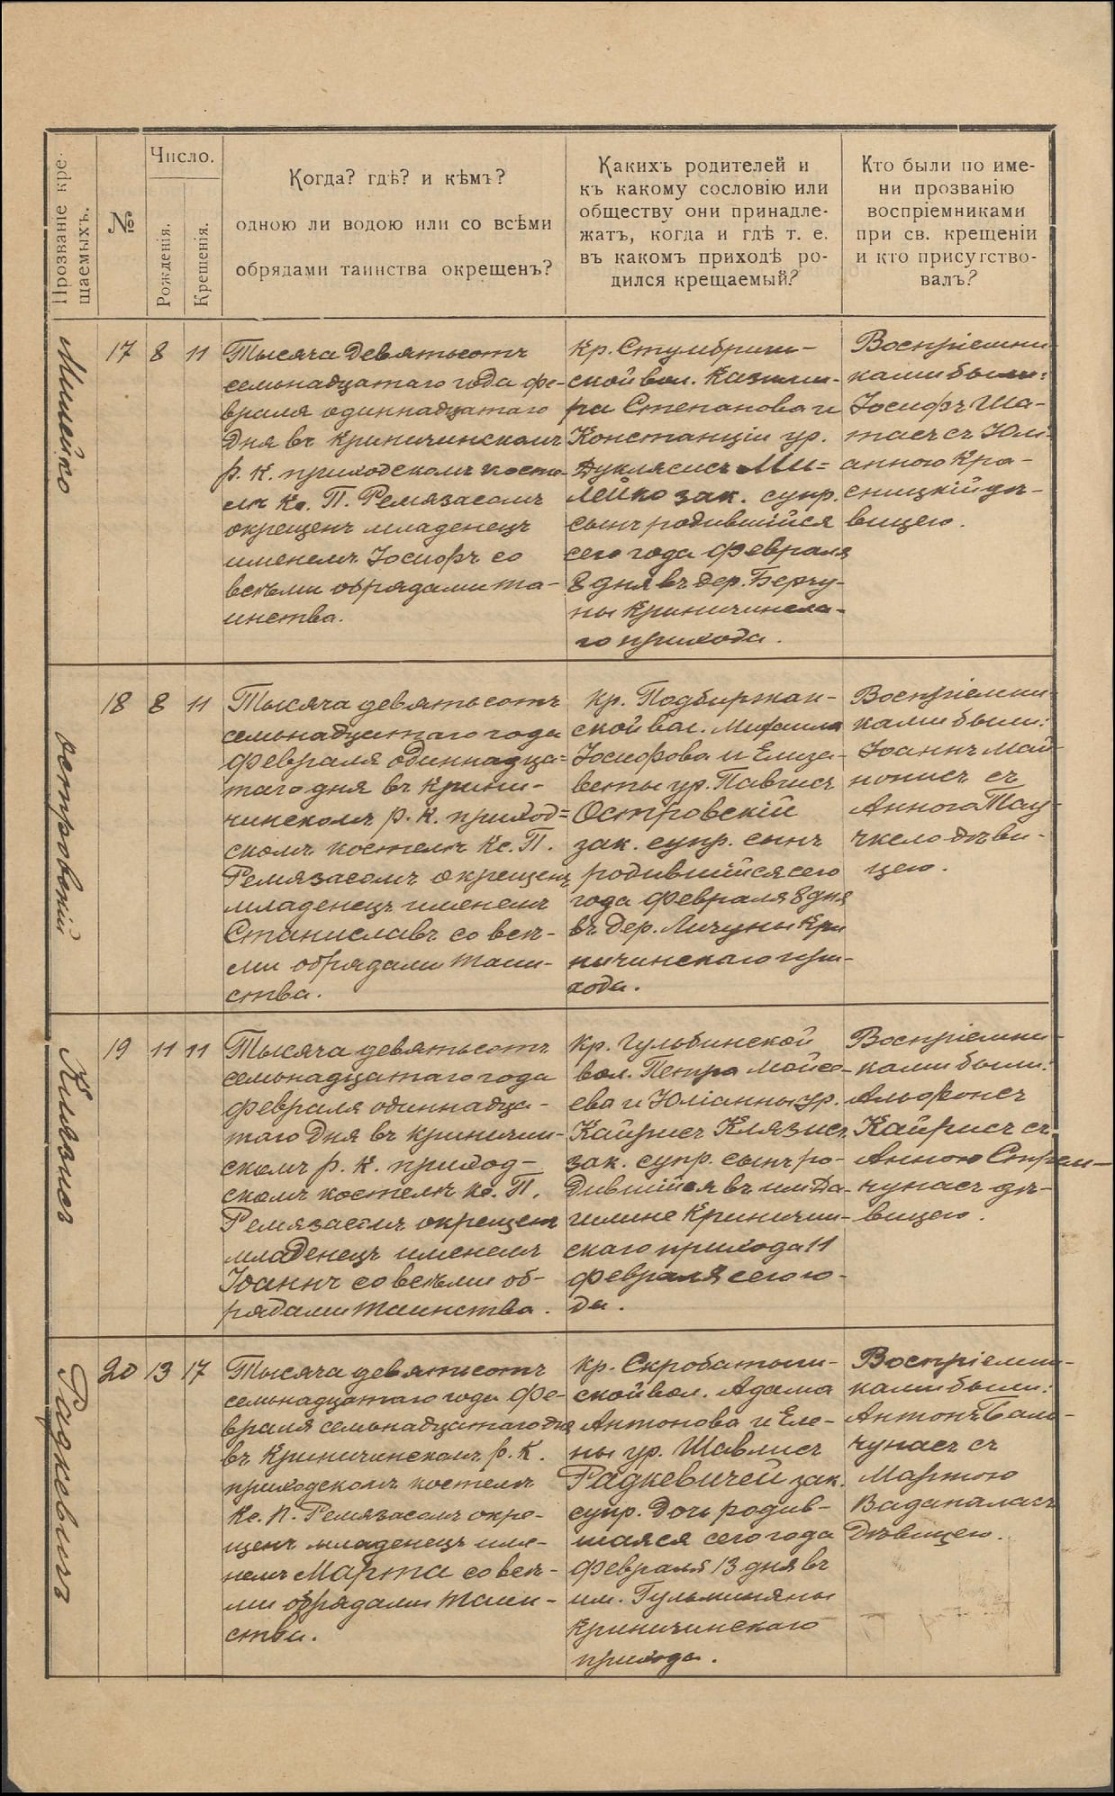 Прозваніе кре-
щаемыхъ.
№
Число.
Рожденія.
Крещенія.
Когда? гдѣ? и кѣмъ?
одною ли водою или со всѣми
обрядами таинства окрещенъ?
Какихъ родителей и
къ какому сословію или
обществу они принадле-
жатъ, когда и гдѣ т. е.
въ какомъ приходѣ ро-
дился крещаемый?
Кто были по име-
ни прозванію
воспріемниками
при св. крещеніи
и кто присутство-
валъ?
Милейко
17 8 11
Тысяча девятьсотъ
семьнадцатаго года фе-
враля одиннадцатаго
дня въ Криничинскомъ
р. К. приходскомъ косте-
лѣ Кс. П. Ремязасомъ
окрещенъ младенецъ
именемъ Іосифъ со
всѣми обрядами та-
инства.
Кр. Стумбриш-
ской вол. Казими-
ра Степанова и
Констанціи ур.
Дуклясисъ Ми=
лейко зак. супр.
сынъ родившійся
сего года февраля
8 дня въ дер. Берчу-
ны Криничинска-
го прихода.
Воспріемни-
ками были:
Іосифъ Ша-
тасъ съ Юлі-
анною Кра-
сницкій дѣ-
вицею.
Островскій
18 8 11
Тысяча девятьсотъ
семьнадцатаго года
февраля одиннадца=
таго дня въ Крини-
чинскомъ р. К. приход=
скомъ костелѣ Кс. П.
Ремязасомъ окрещенъ
младенецъ именемъ
Станиславъ со всѣ-
ми обрядами таин-
ства.
Кр. Подбиржан-
ской вол. Михаила
Іосифова и Елиза-
веты ур. Павлисъ
Островскій
зак. супр. сынъ
родившійся сего
года февраля 8 дня
въ дер. Личуны Кри
ничинскаго при-
хода.
Воспріемни-
ками были:
Іоаннъ
съ
Анною Тау-
чкело дѣви-
цею.
19 11 11
Тысяча девятьсотъ
семьнадцатаго года
февраля одиннадца-
таго дня въ Криничин-
скомъ р. К. приход-
скомъ костелѣ Кс. П.
Ремязасомъ окрещенъ
младенецъ именемъ
Іоаннъ со всѣми об-
рядами таинства.
Кр. Гульбинской
вол. Петра Мойсе-
ева и Юліанны ур.
Кайрисъ
зак. супр. сынъ ро-
дившійся въ им. Да-
гилине Криничин-
скаго прихода 11
февраля сего го-
да.
Воспріемни-
ками были:
Альфонсъ
Кайрисъ съ
Анною
дѣ-
вицею.
Радкевичъ
20 13 17
Тысяча девятьсотъ
семьнадцатаго года фе-
враля семьнадцатаго дня
въ Криничинскомъ р. К.
приходскомъ костелѣ
Кс. П. Ремязасомъ окре-
щенъ младенецъ име-
немъ Марта со всѣ-
ми обрядами таин-
ства.
Кр. Скробатыш-
ской вол. Адама
Антонова и Еле-
ны ур. Шавлисъ
Радкевичей зак.
супр. дочь родив-
шаяся сего года
февраля 13 дня въ
им. Гульминяны
Криничинскаго
прихода.
Воспріемни-
ками были:
Антонъ Бал-
чунасъ съ
Мартою
Вадапаласъ
дѣвицею.